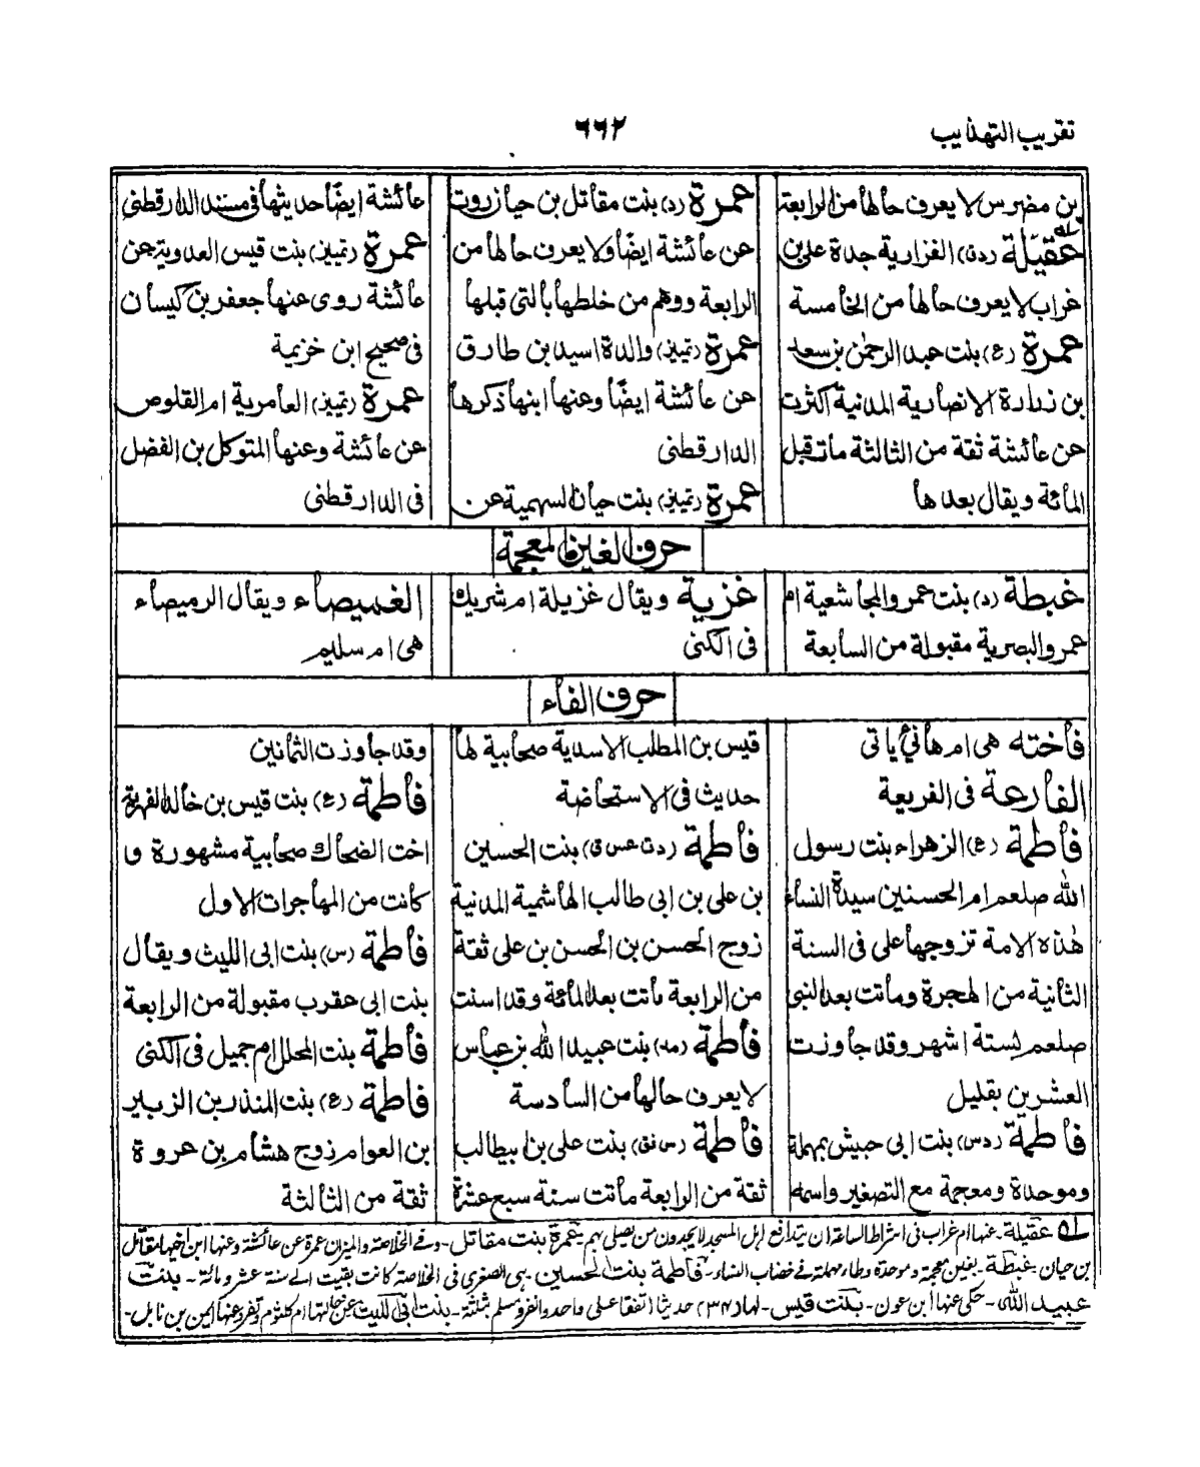 تقريب التهذيب
٦٦٢
بن مضرس لا يعرف حالها من الرابعة
عقيلة (دق) الفزارية جدة على بن
غراب لا يعرف حالها من الخامسة
عمرة (ع) بنت عبد الرحمٰن بن سعد
بن زرارة الانصارية المدنية اكثرت
عن عائشة ثقة من الثالثة ماتت قبل
المائة ويقال بعدها
عمرة (د) بنت مقاتل بن حيان روت
عن عائشة ايضًا ولا يعرف حالها من
الرابعة ووهم من خلطها بالتى قبلها
عمرة (تمييز) والدة اسيد بن طارق
عن عائشة ايضًا وعنها ابنها ذكرها
الدارقطنى
عمرة (تمييز) بنت حيان السهمية عن
عائشة ايضًا حديثها فى مسند الدارقطنى
عمرة (تمييز) بنت قيس العدوية عن
عائشة روى عنها جعفر بن كيسان
فى صحيح ابن خزيمة
عمرة (تمييز) العامرية ام القلوص
عن عائشة وعنها المتوكل بن الفضل
فى الدارقطنى
حرف الغين المعجمة
غبطة (د) بنت عمرو المجاشعية ام
عمرو البصرية مقبولة من السابعة
غزية ويقال غزيلة ام شريك
فى الكنى
الغميصاء ويقال الرميصاء
هى ام سليم
حرف الفاء
فاخته هى ام هانئ ياتى
الفارعة فى الفريعة
فاطمة (ع) الزهراء بنت رسول
الله صلعم ام الحسنين سيدة النساء
هٰذه الامة تزوجها على فى السنة
الثانية من الهجرة وماتت بعد النبى
صلعم بستة اشهر وقد جاوزت
العشرين بقليل
فاطمة (دس) بنت ابى حبيش بمهملة
وموحدة ومعجمة مع التصغير واسمه
قيس بن المطلب الاسدية صحابية لها
حديث فى الاستحاضة
فاطمة (دت عس ق) بنت الحسين
بن على بن ابى طالب الهاشمية المدنية
زوج الحسن بن الحسن بن على ثقة
من الرابعة ماتت بعد المائة وقد اسنت
فاطمة (مد) بنت عبيد الله بن عباس
لا يعرف حالها من السادسة
فاطمة (س فق) بنت على بن ابيطالب
ثقة من الرابعة ماتت سنة سبع عشرة
وقد جاوزت الثمانين
فاطمة (ع) بنت قيس بن خالد الفهرية
اخت الضحاك صحابية مشهورة و
كانت من المهاجرات الاول
فاطمة (س) بنت ابى الليث ويقال
بنت ابى عقرب مقبولة من الرابعة
فاطمة بنت المحلل ام جميل فى الكنى
فاطمة (ع) بنت المنذر بن الزبير
بن العوام زوج هشام بن عروة
ثقة من الثالثة
عقيلة - عنها ام غراب فى اشراط الساعة ان يتدافع اهل المسجد لا يجدون من يصلى بهم - عمرة بنت مقاتل - وفى الخلاصة والميزان عمرة عن عائشة وعنها ابن اخيها مقاتل
بن حيان - غبطة - بغين معجمة وموحدة وطاء مهملة فى خضاب النساء - فاطمة بنت الحسين - هى الصغرى فى الخلاصة كانت بقيت الى سنة عشر ومائة - بنت
عبيد الله - حكى عنها ابن عون - بنت قيس - لها (٣٤) حديثا اتفقا على واحد وانفرد مسلم بثلثة - بنت ابى الليث عن خالتها ام كلثوم وتفرد عنها ايمن بن نابل -